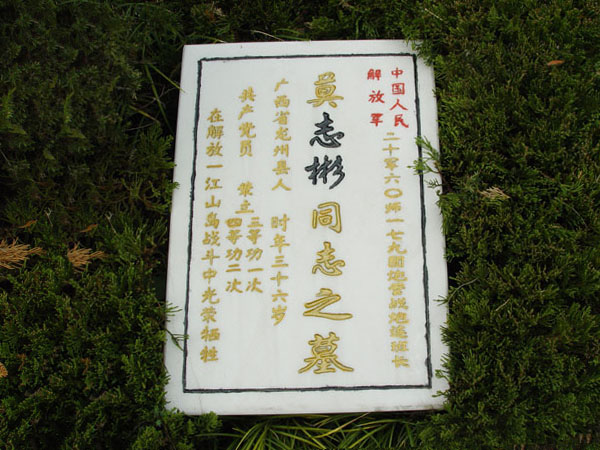 中国人民
解放军
二十军六〇师一七九团炮营战炮连班长
莫志彬同志之墓
广西省龙州县人 时年三十六岁
共产党员 荣立三等功一次
四等功二次
在解放一江山岛战斗中光荣牺牲